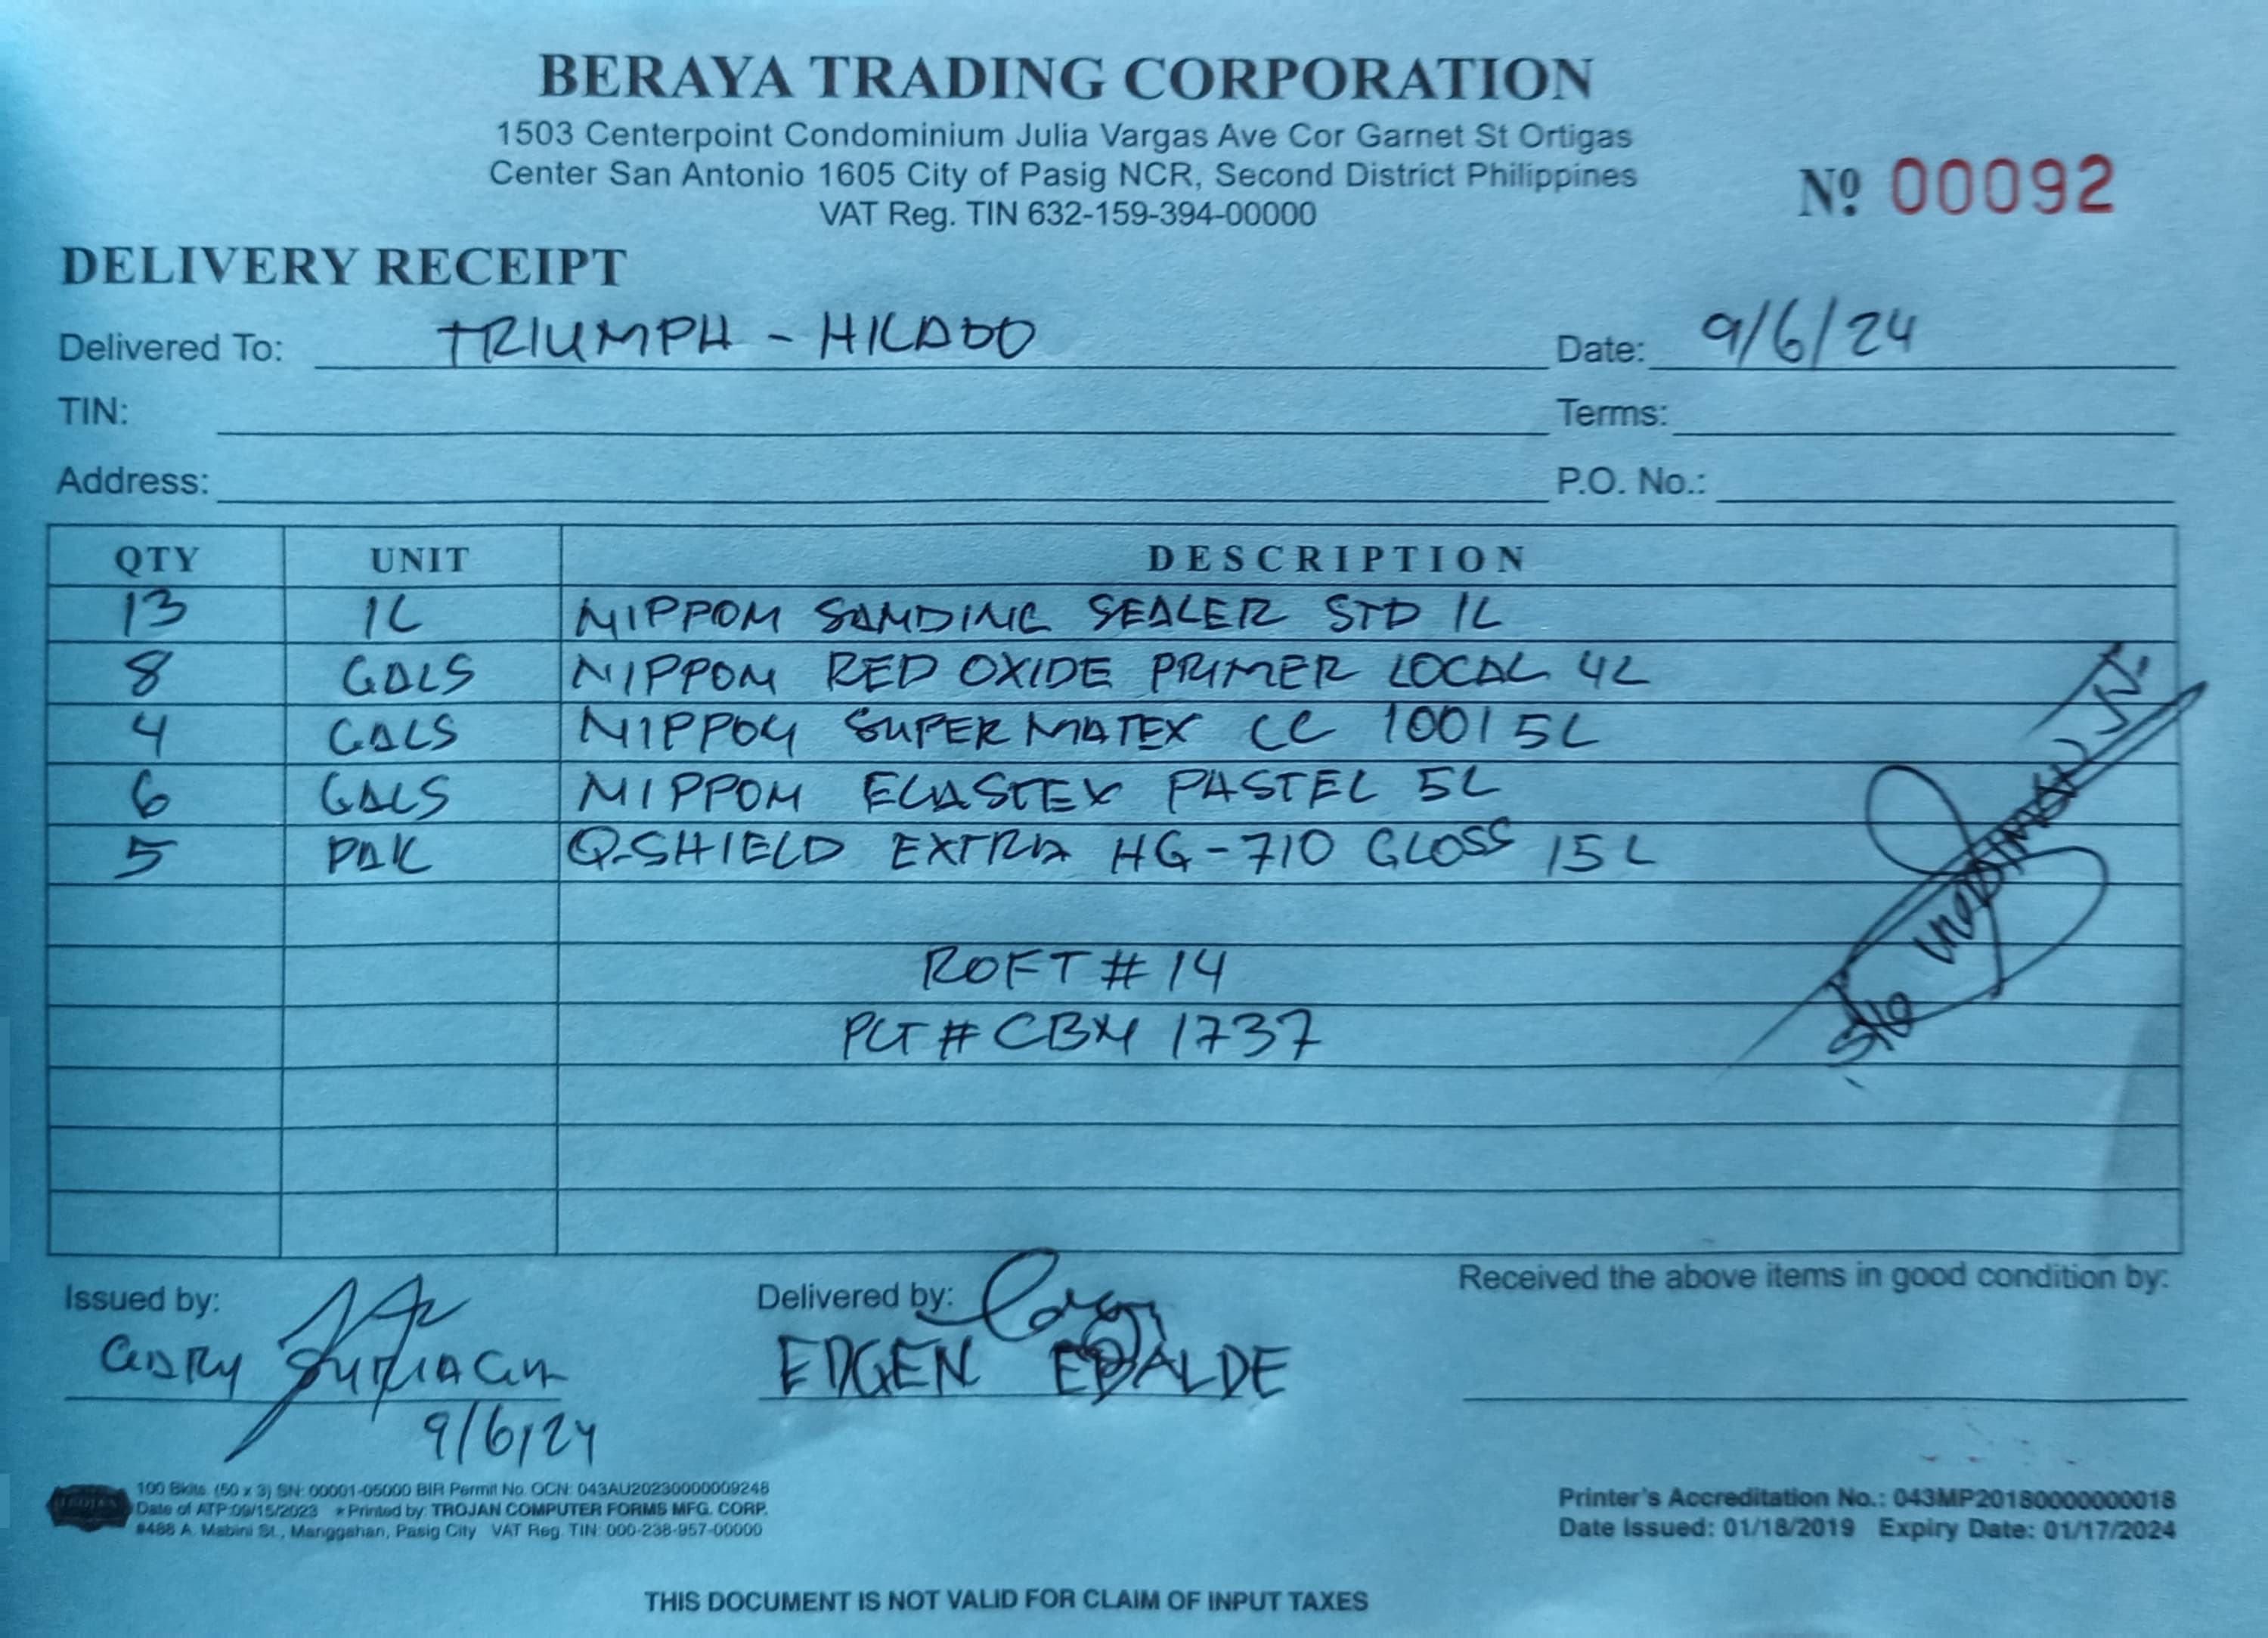 BERAYA TRADING CORPORATION
1503 Centerpoint Condominium Julia Vargas Ave Cor Garnet St Ortigas
Center San Antonio 1605 City of Pasig NCR, Second District Philippines
VAT Reg. TIN 632-159-394-00000
Nº 00092
DELIVERY RECEIPT
Delivered To: TRIUMPH - HILADO Date: 9/6/24
TIN: Terms:
Address: P.O. No.:
QTY UNIT DESCRIPTION
13 1L NIPPON SANDING SEALER STD 1L
8 GALS NIPPON RED OXIDE PRIMER LOCAL 4L
4 GALS NIPPON SUPER MATEX CC 1001 5L
6 GALS NIPPON ELASTEX PASTEL 5L
5 PAK Q-SHIELD EXTRA HG-710 GLOSS 15L
ROFT # 14
PLT # CBM 1737
Issued by: Delivered by: Received the above items in good condition by:
GARY EDGEN EBALDE
9/6/24
100 Bklts. (50 x 3) SN: 00001-05000 BIR Permit No. OCN: 043AU20230000009248
Date of ATP:09/15/2023 *Printed by: TROJAN COMPUTER FORMS MFG. CORP.
#488 A. Mabini St., Manggahan, Pasig City VAT Reg. TIN: 000-238-957-00000
Printer's Accreditation No.: 043MP20180000000018
Date Issued: 01/18/2019 Expiry Date: 01/17/2024
THIS DOCUMENT IS NOT VALID FOR CLAIM OF INPUT TAXES